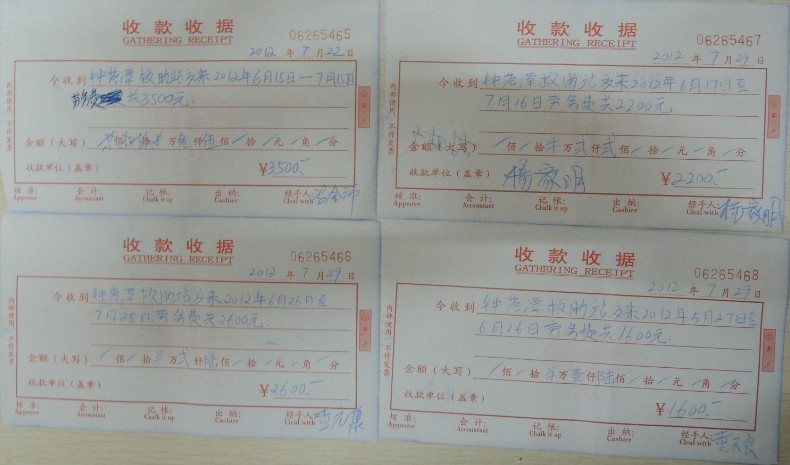 收款收据
GATHERING RECEIPT
06265465
2012 年 7 月 22 日
今收到 钟落潭救助站方来2012年6月15日—7月15日
劳务费 共3500元.
金额（大写） 佰 拾 万 叁 仟 伍 佰 拾 元 角 分
收款单位（盖章） ¥3500.-
核准: 会计: 记帐: 出纳: 经手人:
Approve Accountant Chalk it up Cashier Cleal with
内部使用 不作发票
收款收据
GATHERING RECEIPT
06265467
2012 年 7 月 29 日
今收到 钟落潭救助站方来2012年6月17日至
7月16日劳务费共2200元
金额（大写） 佰 拾 万 贰 仟 贰 佰 拾 元 角 分
收款单位（盖章） ¥2200.-
核准: 会计: 记帐: 出纳: 经手人:
Approve Accountant Chalk it up Cashier Cleal with
内部使用 不作发票
收款收据
GATHERING RECEIPT
06265466
2012 年 7 月 29 日
今收到 钟落潭救助站方来2012年6月26日至
7月25日劳务费共2600元.
金额（大写） 佰 拾 万 贰 仟 陆 佰 拾 元 角 分
收款单位（盖章） ¥2600.-
核准: 会计: 记帐: 出纳: 经手人:
Approve Accountant Chalk it up Cashier Cleal with
内部使用 不作发票
收款收据
GATHERING RECEIPT
06265468
2012 年 7 月 29 日
今收到 钟落潭救助站方来2012年5月27日至
6月26日劳务费共1600元.
金额（大写） 佰 拾 万 壹 仟 陆 佰 拾 元 角 分
收款单位（盖章） ¥1600.-
核准: 会计: 记帐: 出纳: 经手人:
Approve Accountant Chalk it up Cashier Cleal with
内部使用 不作发票